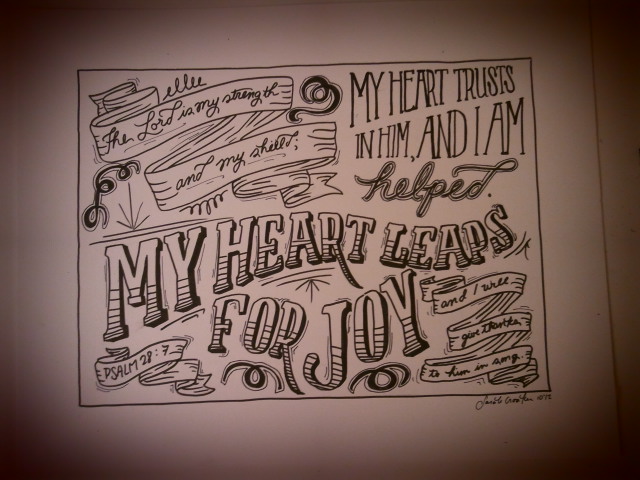 The Lord is my strength
and my shield;
MY HEART TRUSTS
IN HIM, AND I AM
helped.
MY HEART LEAPS
FOR JOY
and I will
give thanks
to him in song.
PSALM 28:7